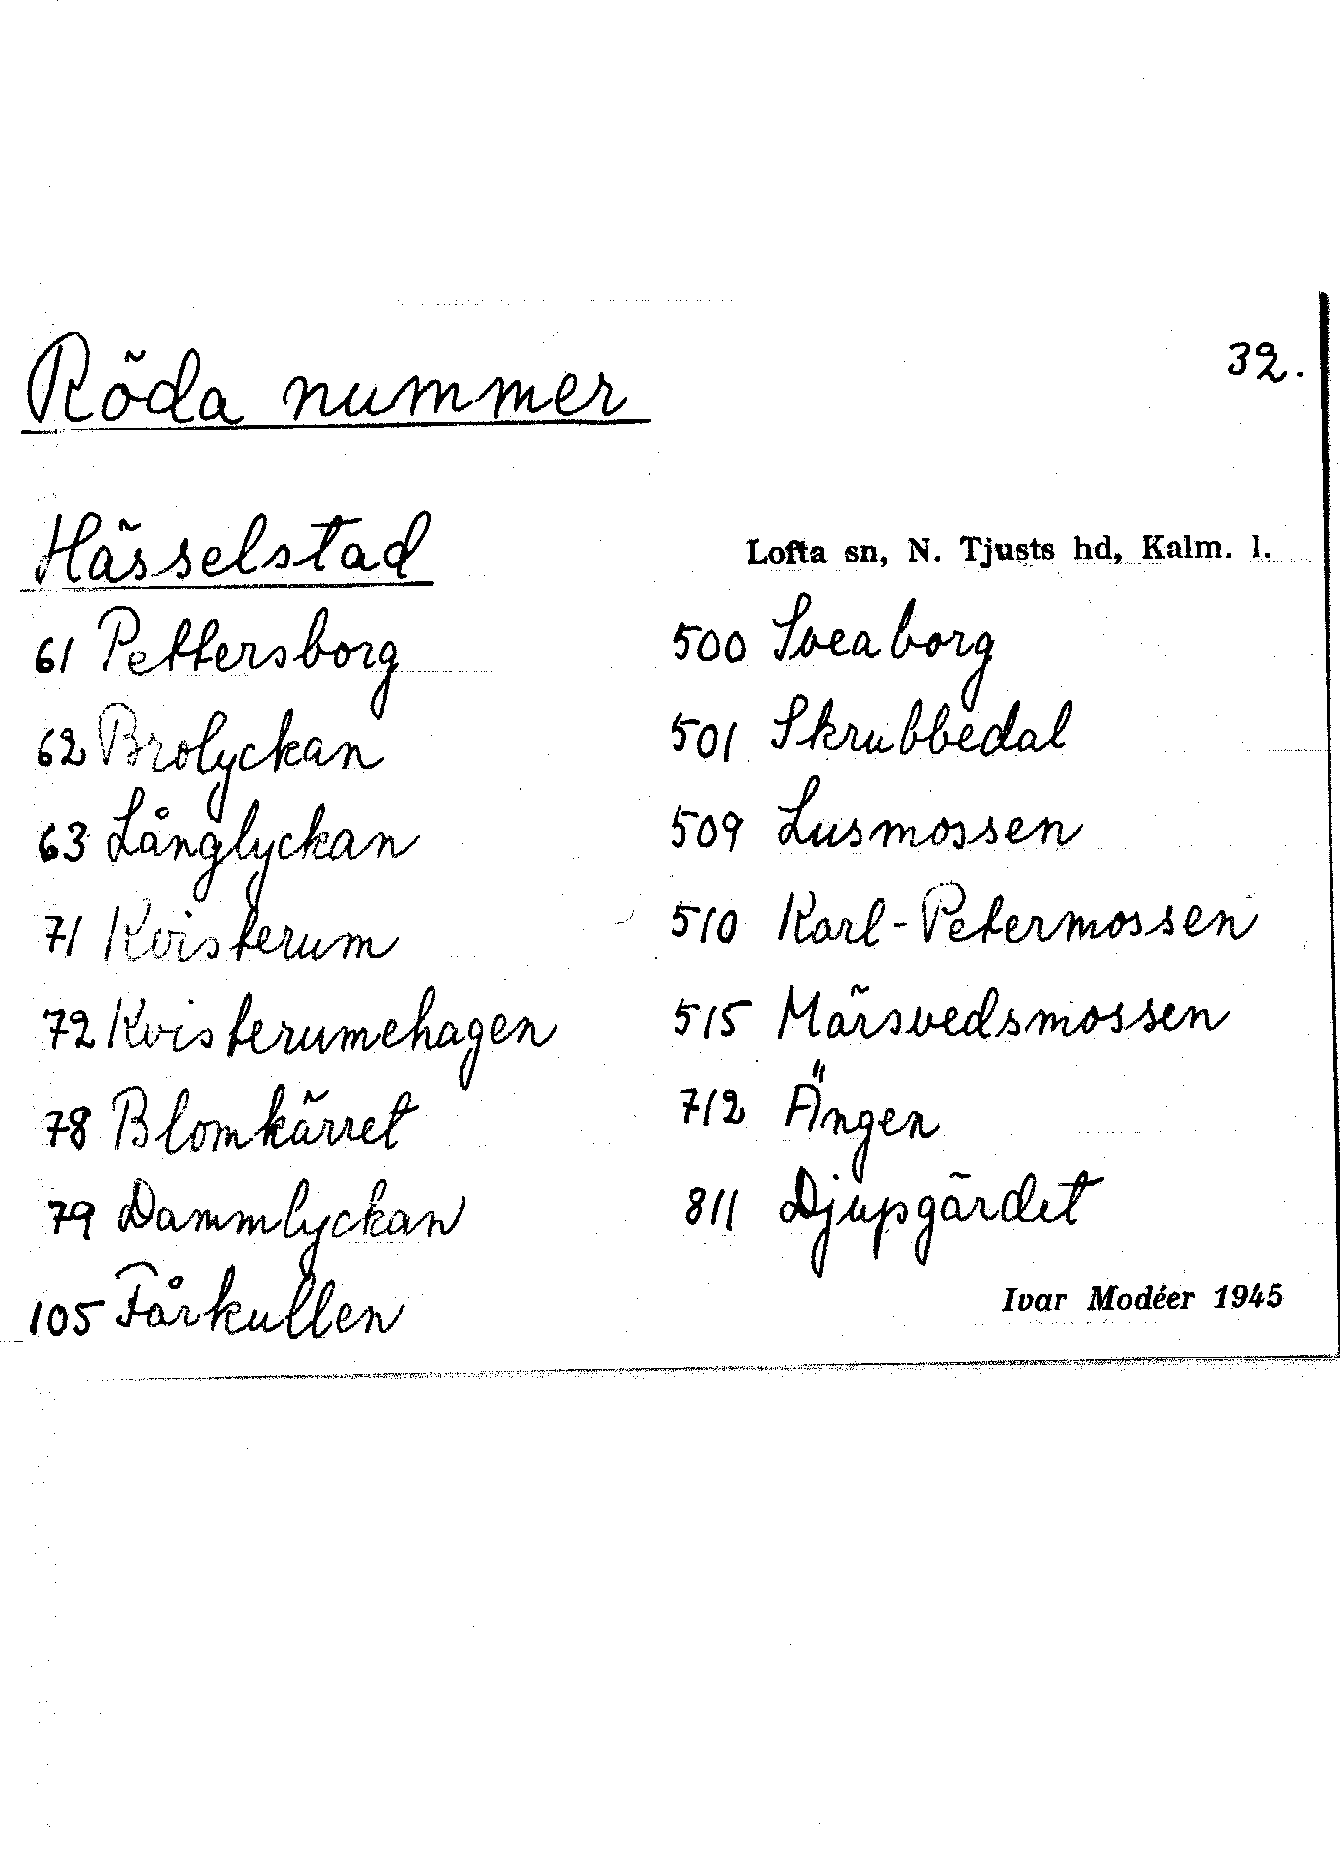 Röda nummer
32.
Hässelstad
Lofta sn, N. Tjusts hd, Kalm. l.
61 Pettersborg
62 Brolyckan
63 Långlyckan
71 Kvisterum
72 Kvisterumehagen
78 Blomkärret
79 Dammlyckan
105 Fårkullen
500 Sveaborg
501 Skrubbedal
509 Lusmossen
510 Karl-Petermossen
515 Märsvedsmossen
712 Ängen
811 Djupgärdet
Ivar Modéer 1945